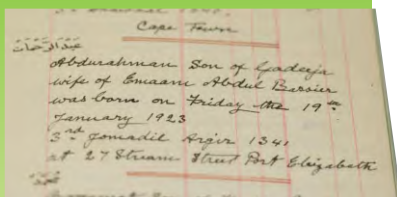 Cape Town
عبد الرحمان
Abdurahman Son of Gadeeja
wife of Emaam Abdul Bassier
was born on Friday the 19th
January 1923
3rd Jomadil Aḡir 1341
at 27 Stuam Street Port Elizabeth